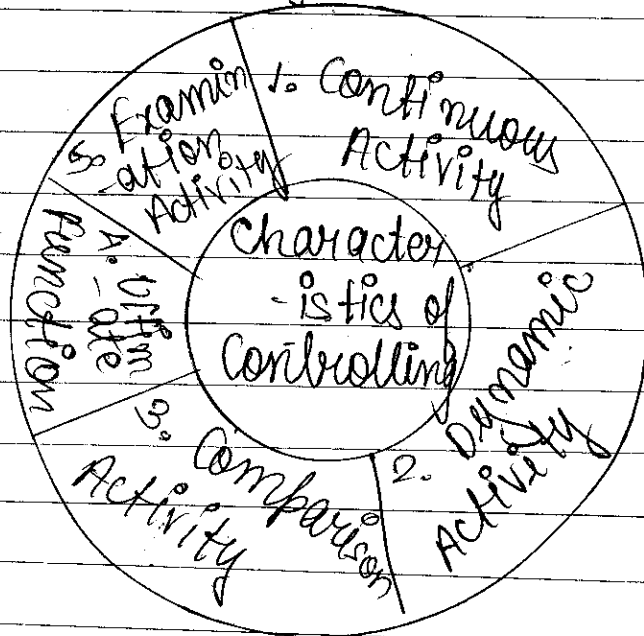 Character
-istics of
Controlling
1. Continuous
Activity
2. Dynamic
Activity
3. Comparison
Activity
4. Ultim
-ate
Function
5. Examin
-ation
Activity